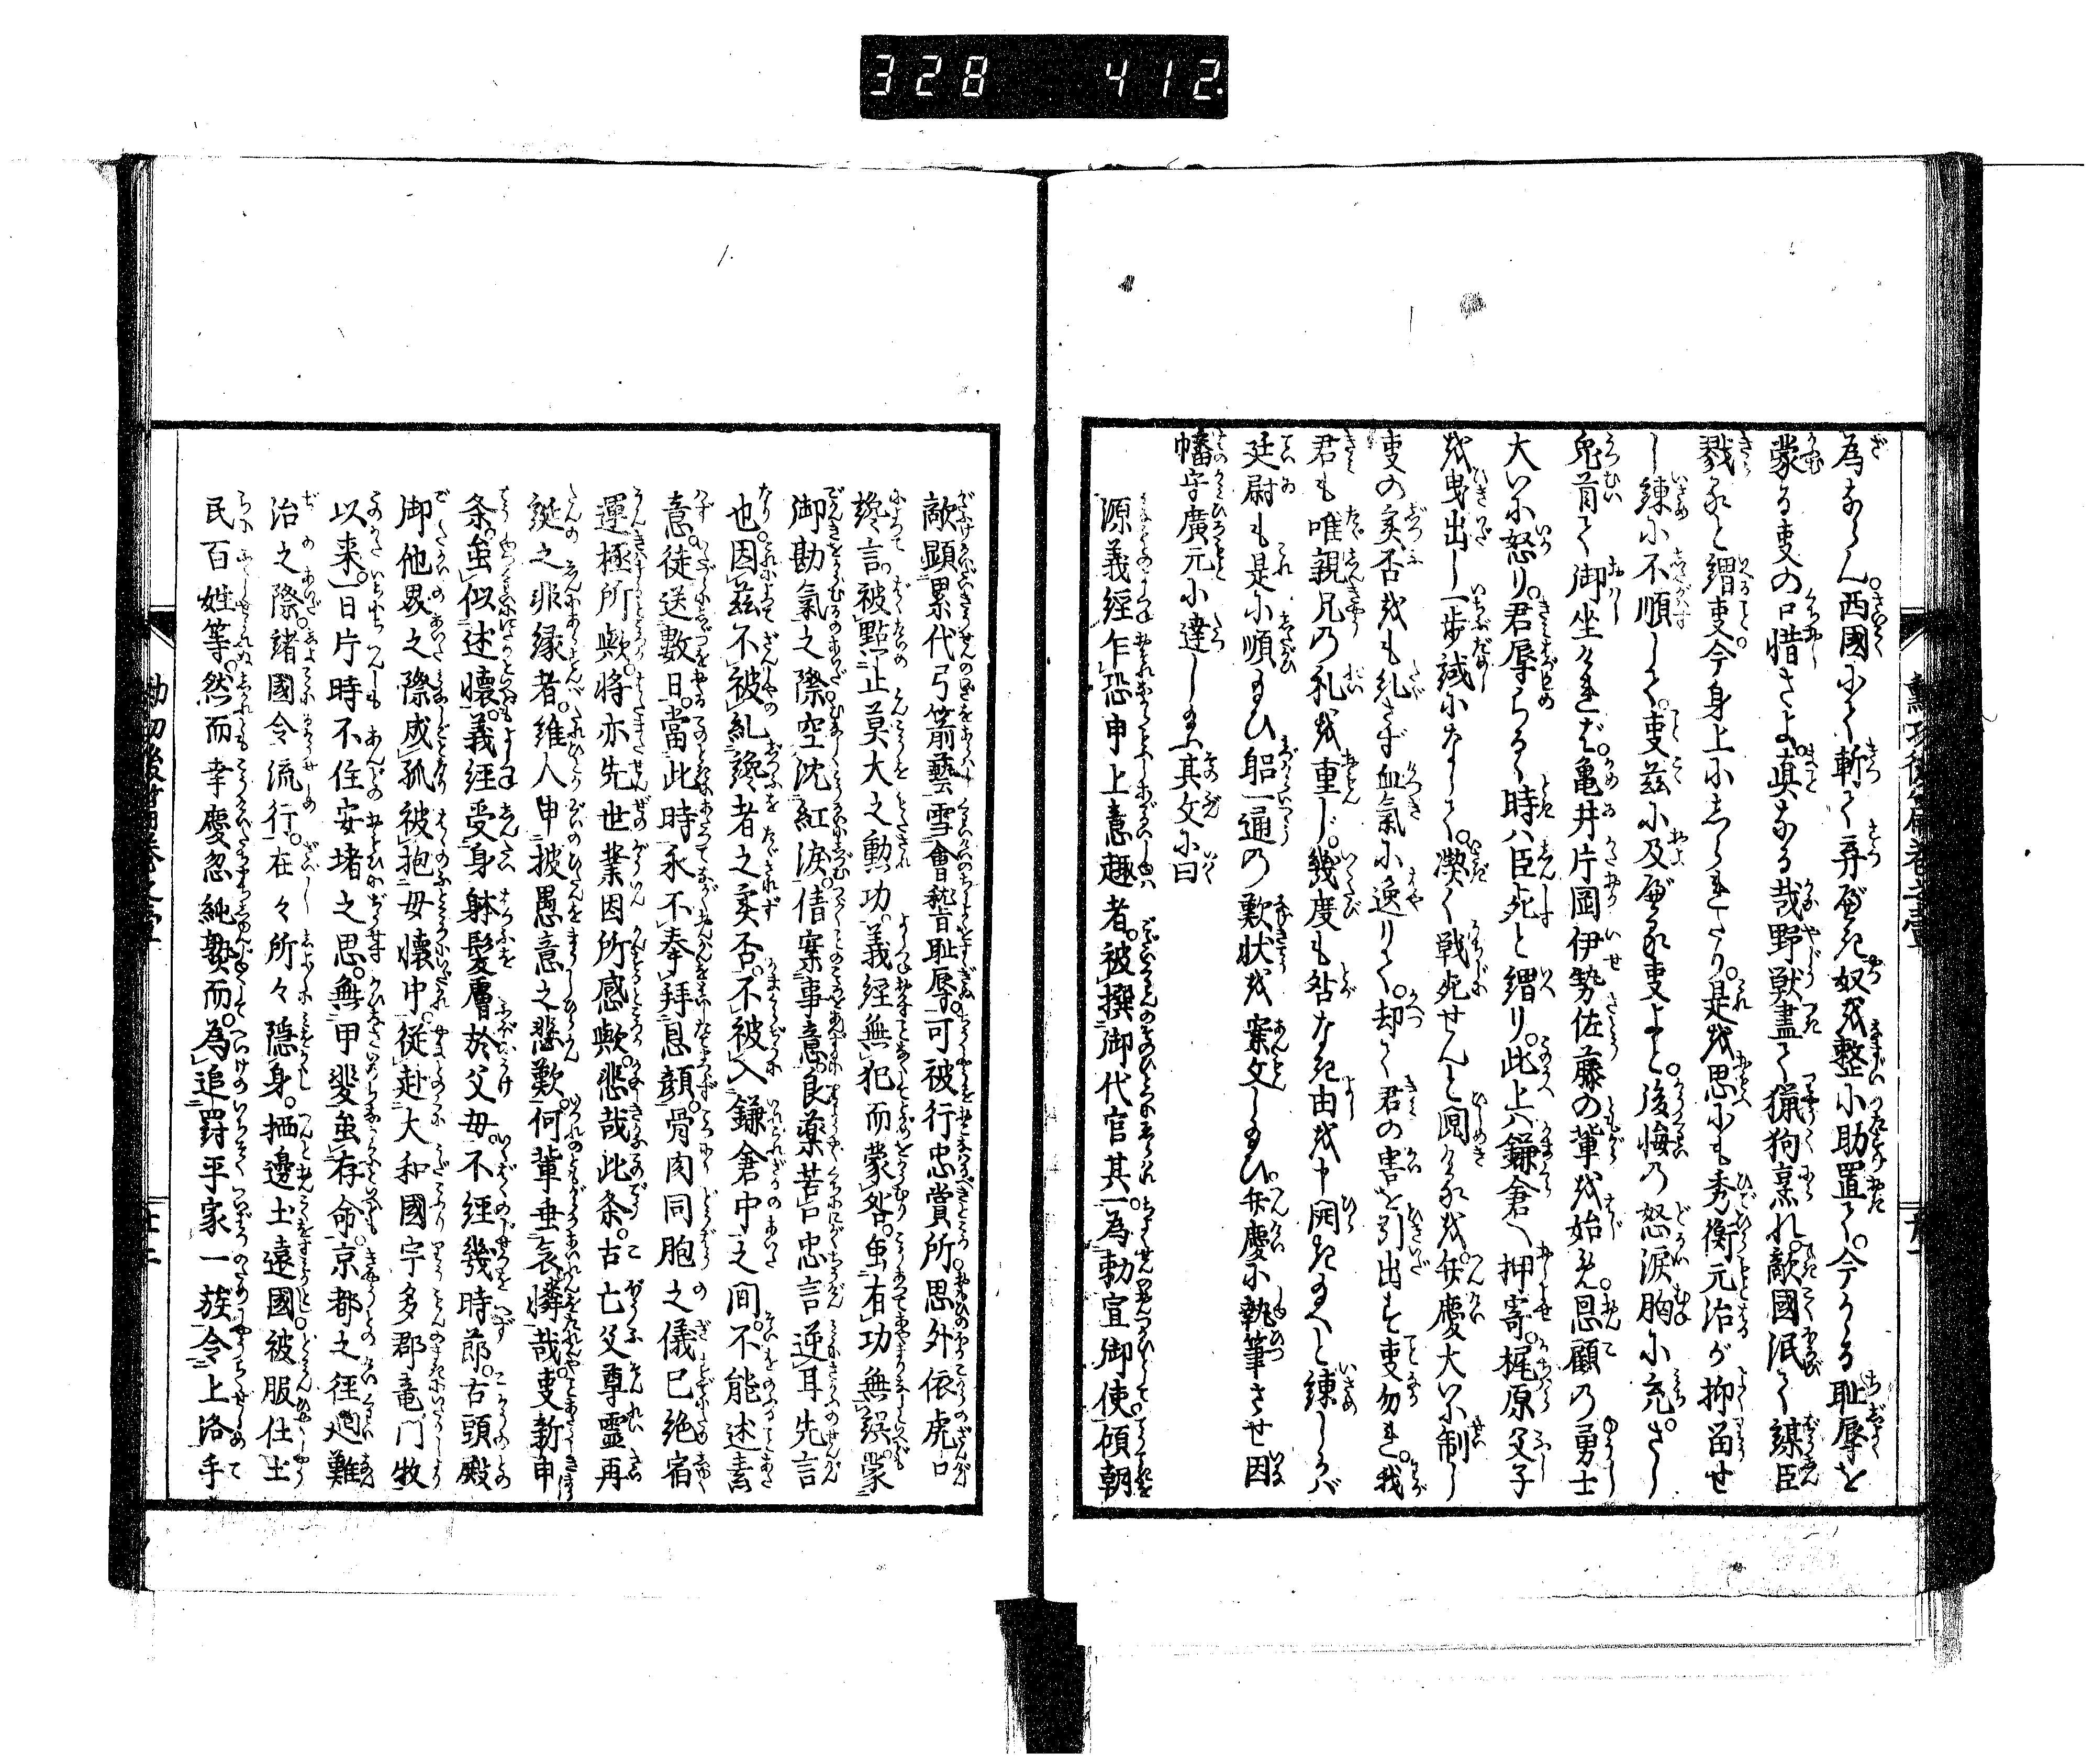 328 412.
為ならん。西國にて斬て弃べき奴を整小助置て。今かゝる耻辱を
蒙る叓の口惜さよ。真なる哉野獣盡て猟狗烹れ。敵國泯て謀臣
戮るゝと謂叓。今身上にしられたり。是を思にも秀衡元治が抑畄せ
し諫に不順して。叓茲に及べる叓よと。後悔の怒涙胸に充。さし
兎首て御坐ければ。亀井片岡伊勢佐藤の輩を始め。恩顧の勇士
大に怒り。君辱らるゝ時ハ臣死と謂り。此上ハ鎌倉へ押寄。梶原父子
を曳出し一歩試になして。潔く戦死せんと鬩けるを。弁慶大に制し
叓の実否をも糺さず血氣に逸りて。却て君の害を引出す叓勿れ。我
君も唯親兄の礼を重じ。幾度も咎なき由を申開き玉へと諫しかバ
廷尉も是に順玉ひ。軈一通の歎状を案文し玉ひ。弁慶に執筆させ因
幡守廣元に達し玉ふ其文に曰
源義經乍恐申上意趣者。被撰御代官其一。為勅宣御使。傾朝
敵顕累代弓箭藝雪會稽耻辱。可被行忠賞所。思外依虎口
讒言。被點止莫大之勲功。義経無犯而蒙咎。虽有功無誤。蒙
御勘氣之際空沈紅涙。倩案事意。良薬苦口忠言逆耳先言
也。因茲不被糺讒者之実否。不被入鎌倉中之間。不能述素
意。徒送數日。當此時永不奉拝恩顔。骨肉同胞之儀已絶宿
運極所歟。将亦先世業因所感歟。悲哉此条。古亡父尊霊再
誕之非縁者。維人申披愚意之悲歎。何輩垂哀憐哉。叓新申
条。虽似述懐。義経受身躰髪膚於父母。不経幾時莭。古頭殿
御他畀之際。成孤被抱母懐中。従赴大和國宇多郡竜門牧
以来。一日片時不住安堵之思。無甲斐虽存命。京都之徑廻難
治之際。諸國令流行。在々所々隠身。栖邊土遠國被服仕土
民百姓等。然而幸慶忽純熟而。為追罸平家一族令上洛手